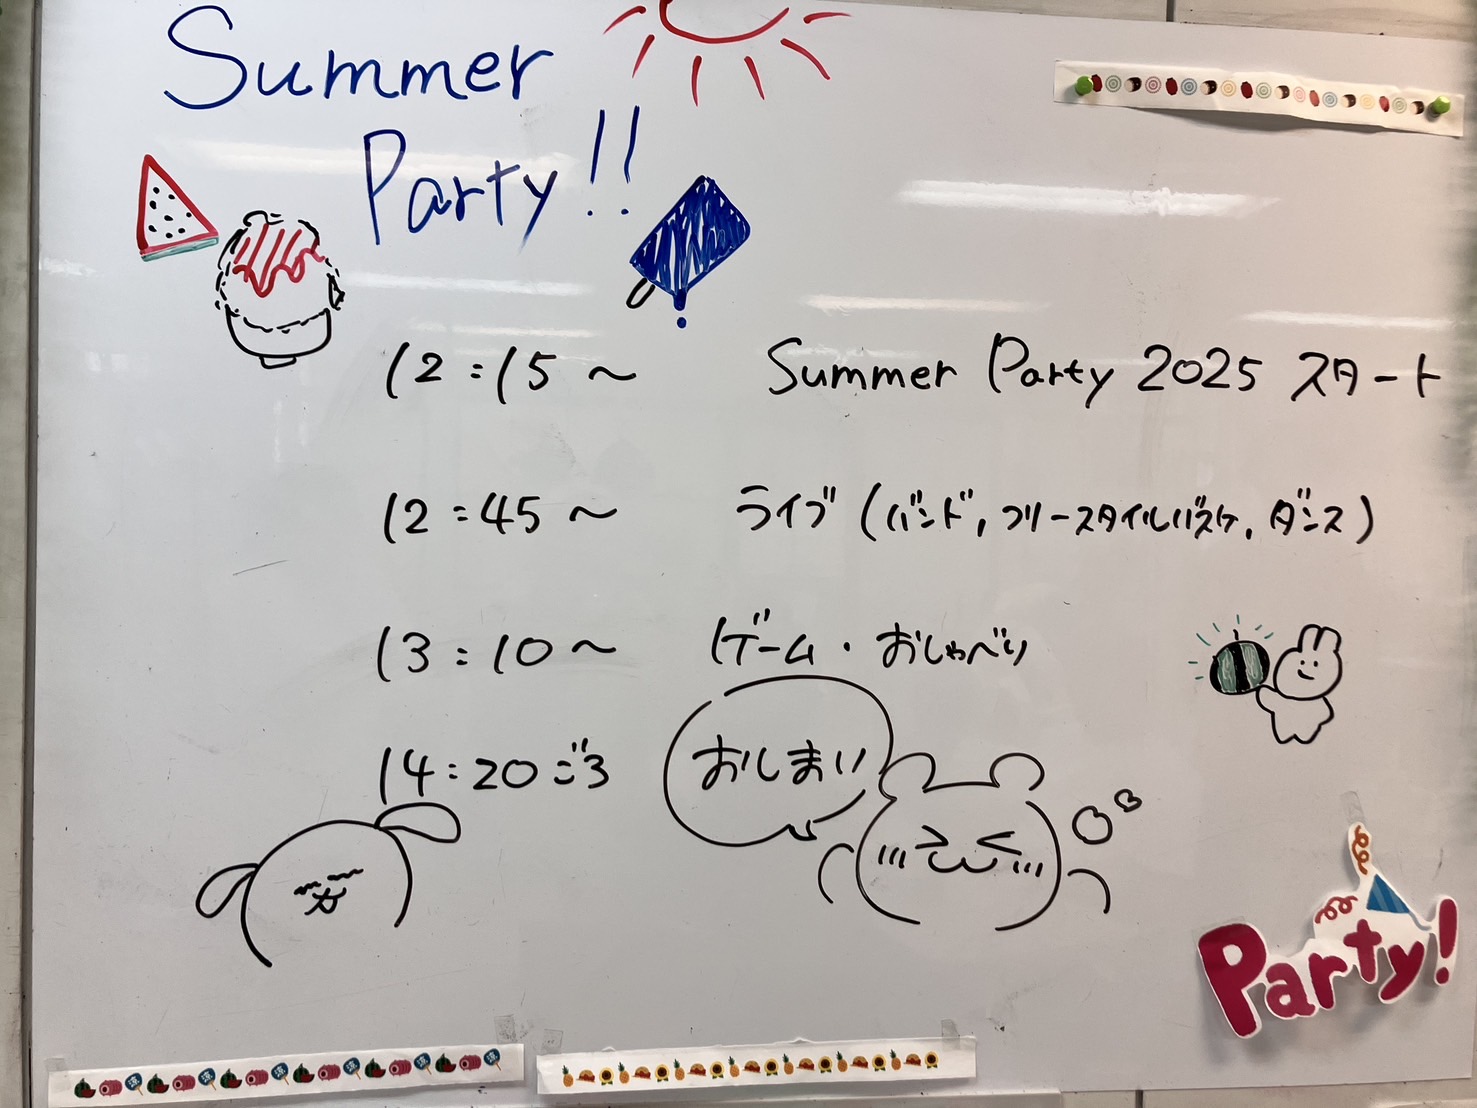 Summer
Party!!
12:15～ Summer Party 2025 スタート
12:45～ ライブ (バンド, フリースタイルバスケ, ダンス)
13:10～ ゲーム・おしゃべり
14:20ごろ おしまい
Party!